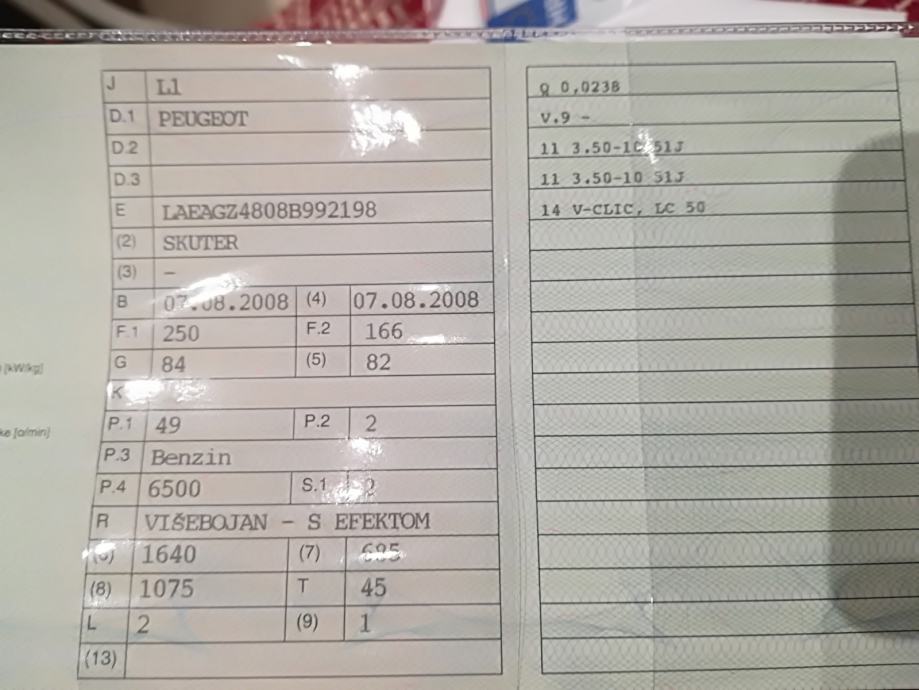 J L1
D.1 PEUGEOT
D.2
D.3
E LAEAGZ4808B992198
(2) SKUTER
(3) –
B 07.08.2008 (4) 07.08.2008
F.1 250 F.2 166
G 84 (5) 82
K
P.1 49 P.2 2
P.3 Benzin
P.4 6500 S.1 2
R VIŠEBOJAN - S EFEKTOM
1640 (7) 695
(8) 1075 T 45
L 2 (9) 1
(13)
[kW/kg]
[o/min]
Q 0,0238
V.9 -
11 3.50-10 51J
11 3.50-10 51J
14 V-CLIC, LC 50